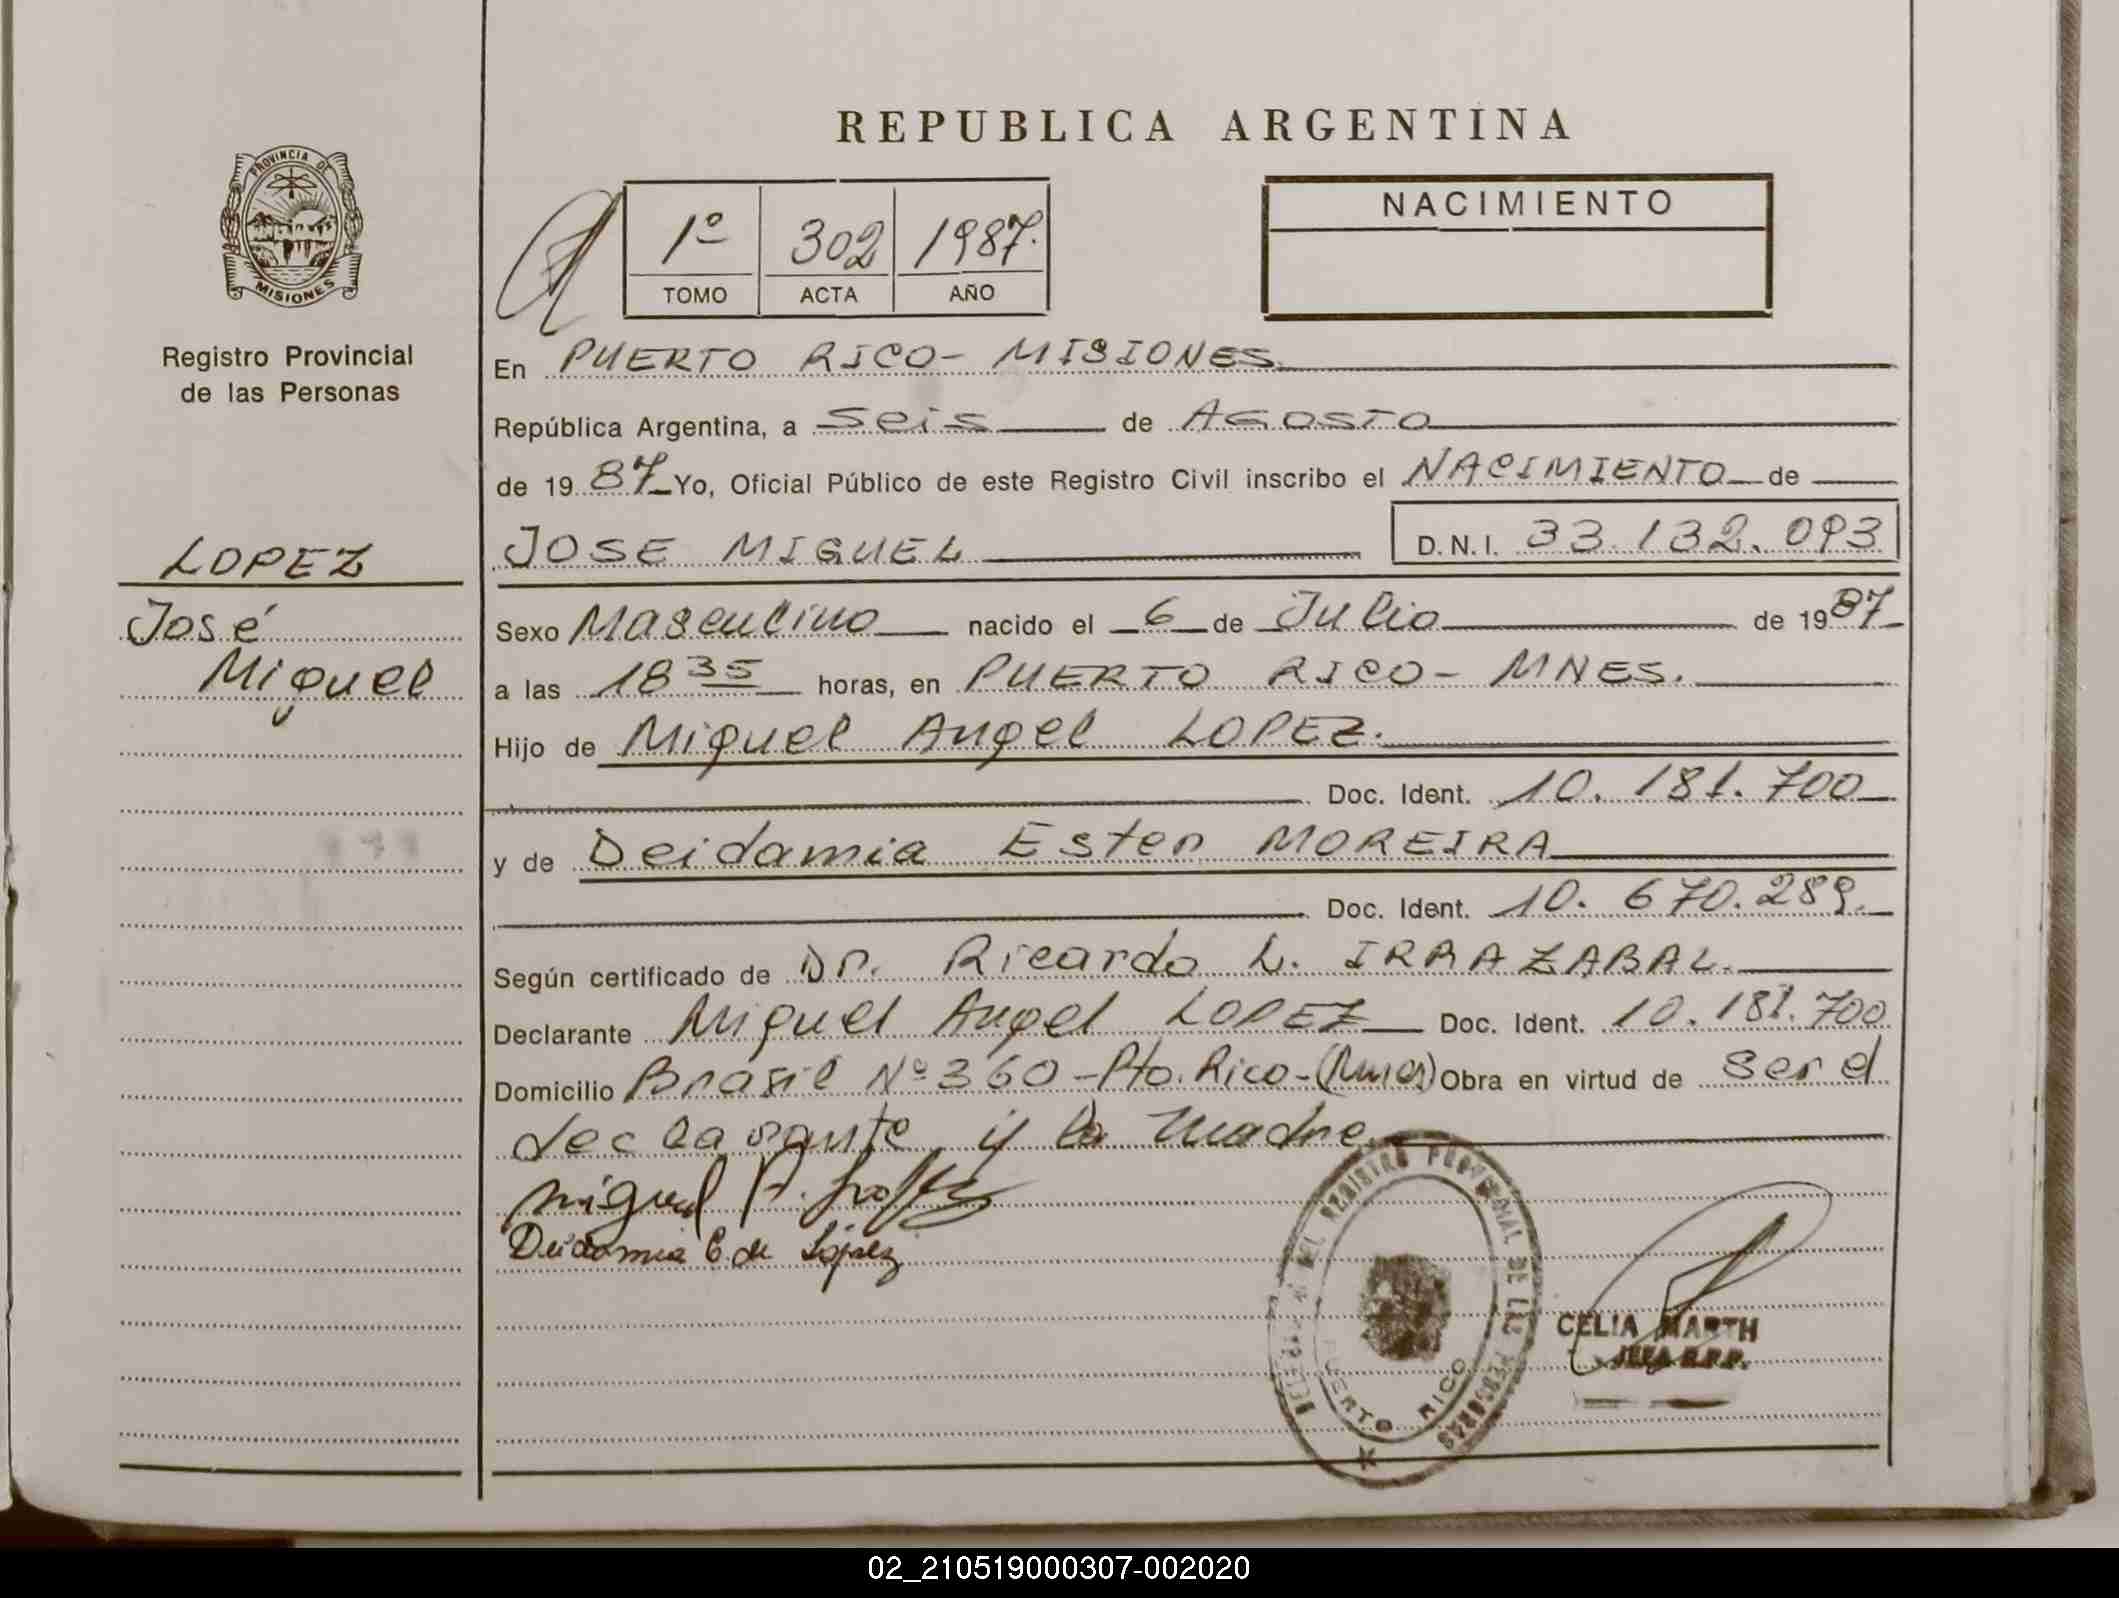 REPUBLICA ARGENTINA
PROVINCIA DE
MISIONES
Registro Provincial
de las Personas
1º 302 1987.
TOMO ACTA AÑO
NACIMIENTO
En PUERTO RICO - MISIONES
República Argentina, a seis de AGOSTO
de 1987 Yo, Oficial Público de este Registro Civil inscribo el NACIMIENTO de
JOSE MIGUEL D.N.I. 33.132.093
LOPEZ
José
Miguel
Sexo Masculino nacido el 6 de Julio de 1987
a las 18 35 horas, en PUERTO RICO - MNES.
Hijo de Miguel Angel LOPEZ.
Doc. Ident. 10.181.700
y de Deidamia Ester MOREIRA
Doc. Ident. 10.670.289.
Según certificado de Dr. Ricardo L. IRRAZABAL.
Declarante Miguel Angel LOPEZ Doc. Ident. 10.181.700
Domicilio Brasil Nº 360 - Pto. Rico - (Mnes) Obra en virtud de ser el
declarante y la madre
Miguel A. Lopez
Deidamia E. de López
DEL REGISTRO PROVINCIAL DE LAS PERSONAS
PUERTO RICO
CELIA MARTH
JEFA R.P.P.
02_210519000307-002020